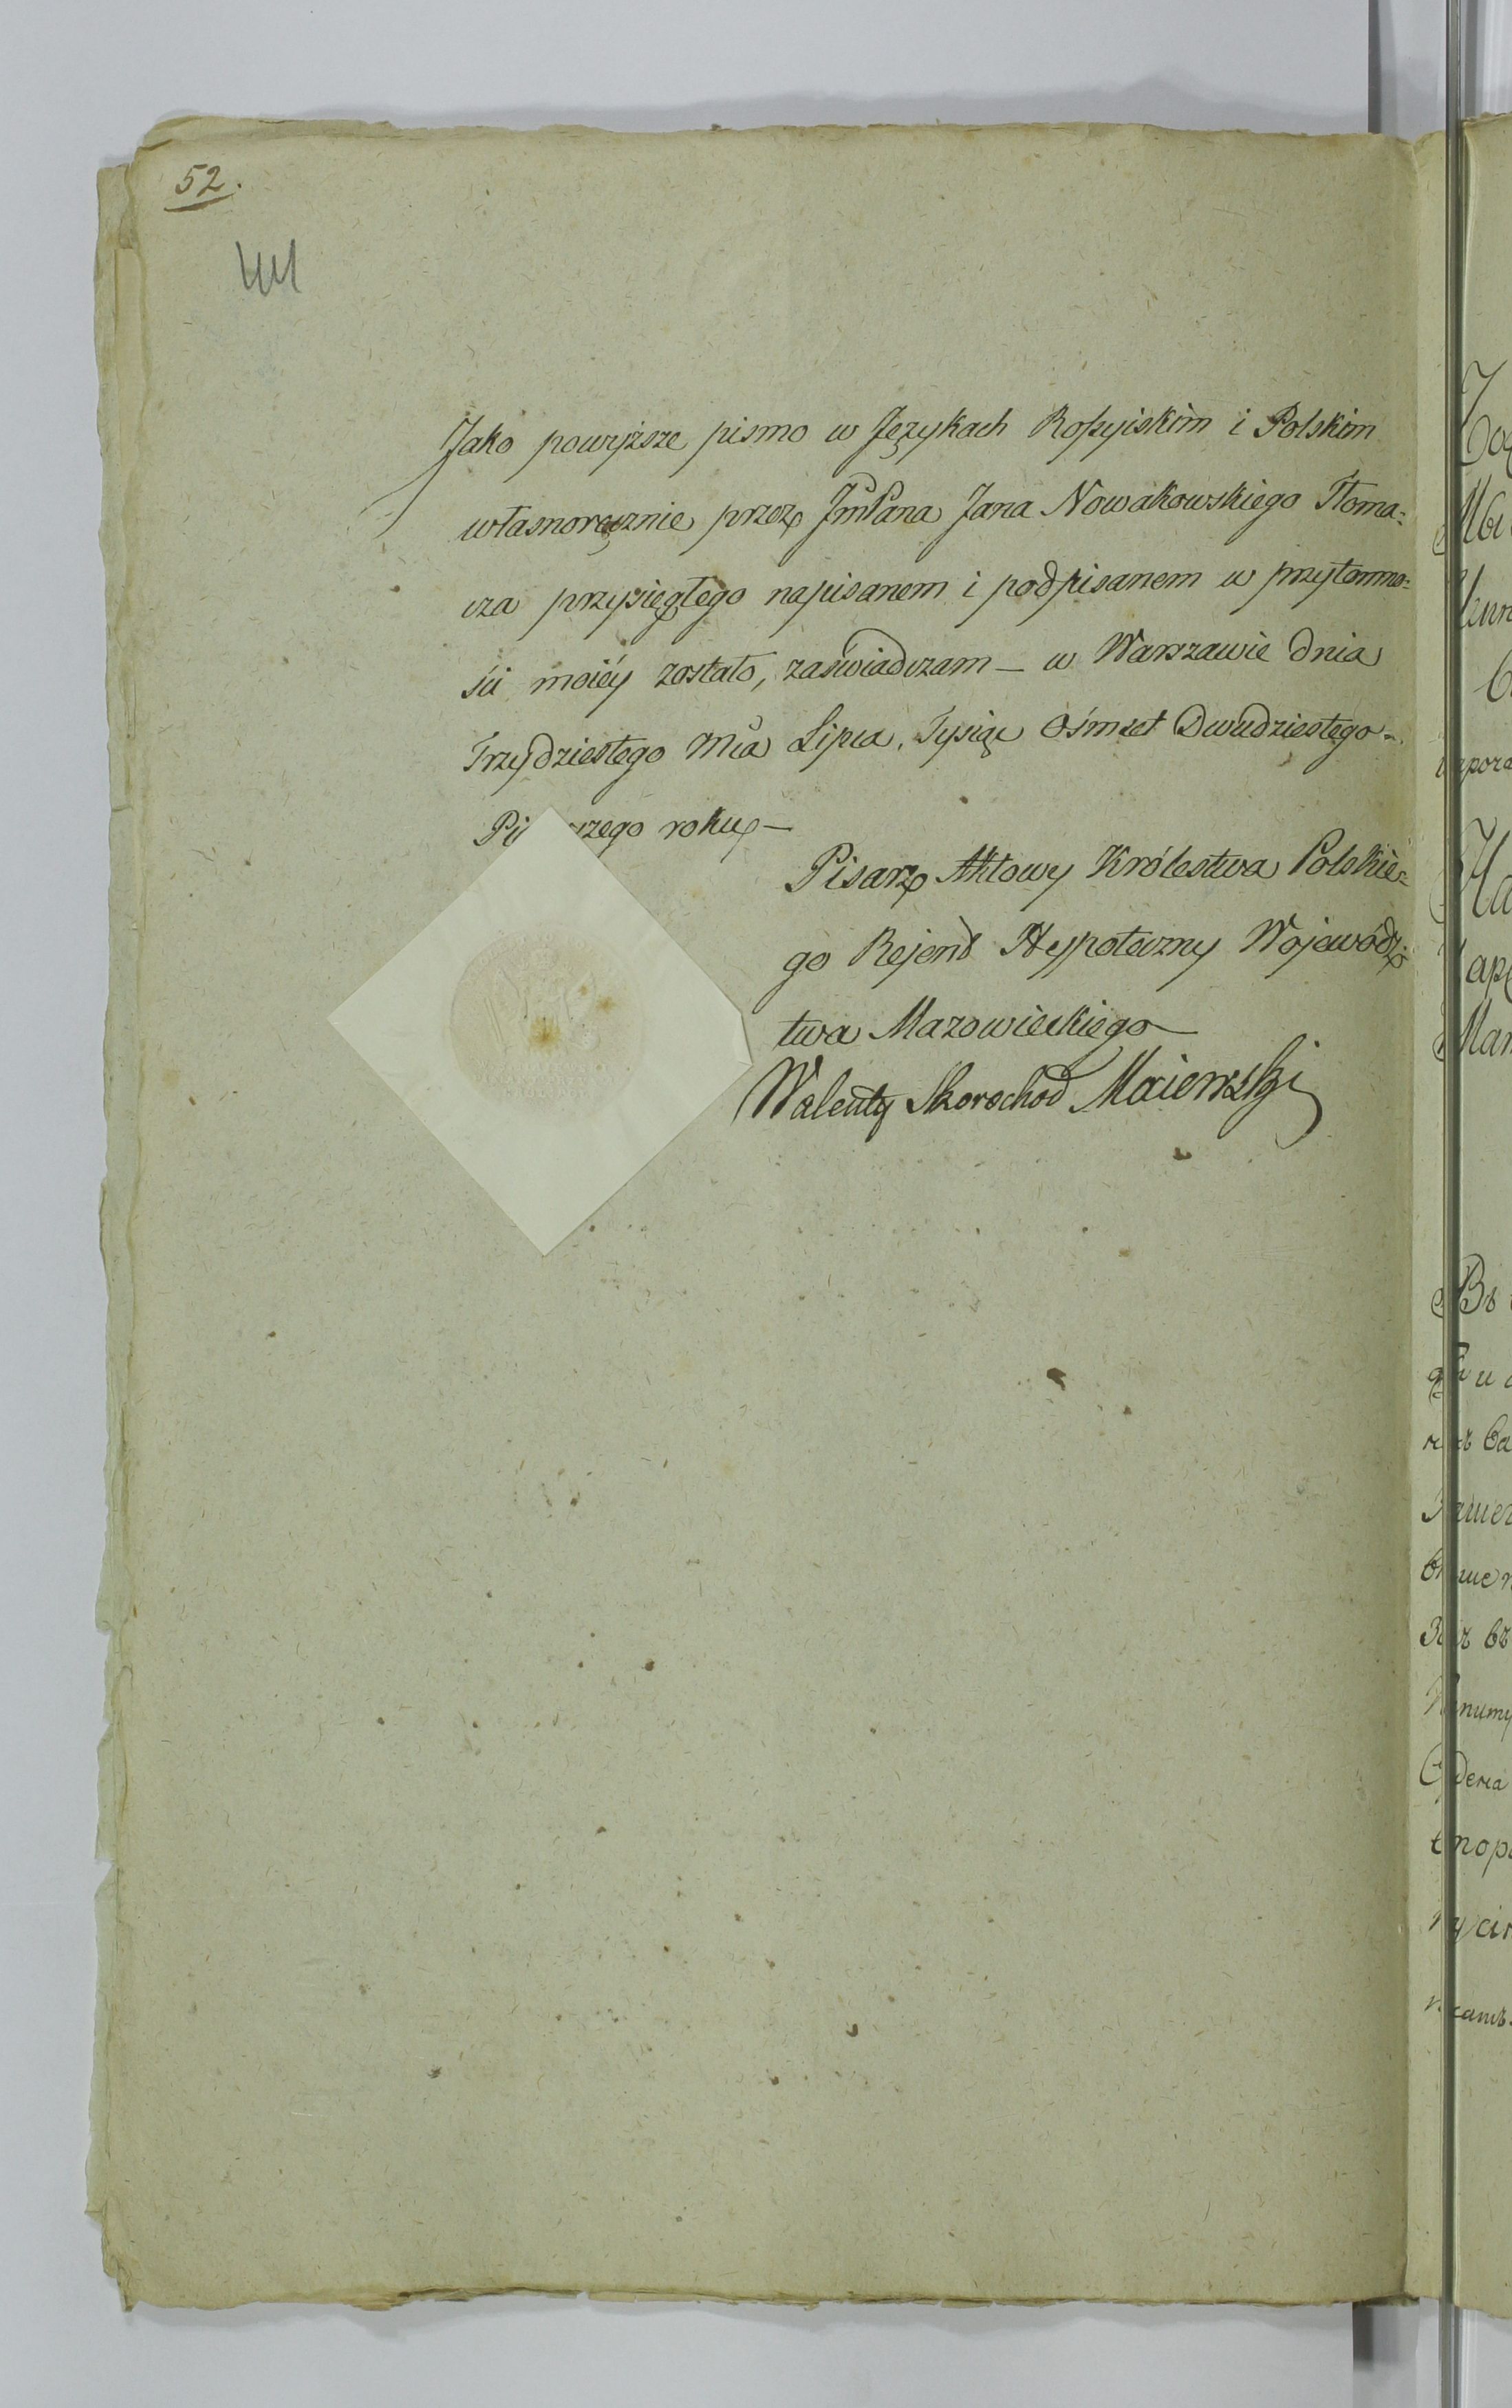 52.
Jako powyższe pismo w Językach Rossyiskim i Polskim
własnoręcznie przez JmPana Jana Nowakowskiego Tłoma=
cza przysięgłego napisanem i podpisanem w przytomno=
ści moiéy zostało, zaświadczam — w Warszawie dnia
Trzydziestego Mca Lipca, Tysiąc Ośmset Dwudziestego
rokup —
Pisarz Aktowy Królestwa Polskie=
go Rejent Hypoteczny Wojewódz
twa Mazowieckiego
Walenty Skorochod Maiewski